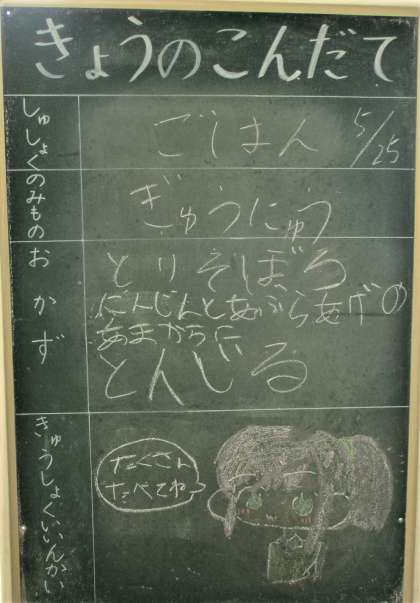 きょうのこんだて
しゅしょく
ごはん 5/25
のみもの
ぎゅうにゅう
おかず
とりそぼろ
にんじんとあぶらあげの
あまからに
とんじる
きゅうしょくいいんかい
たくさん
たべてね